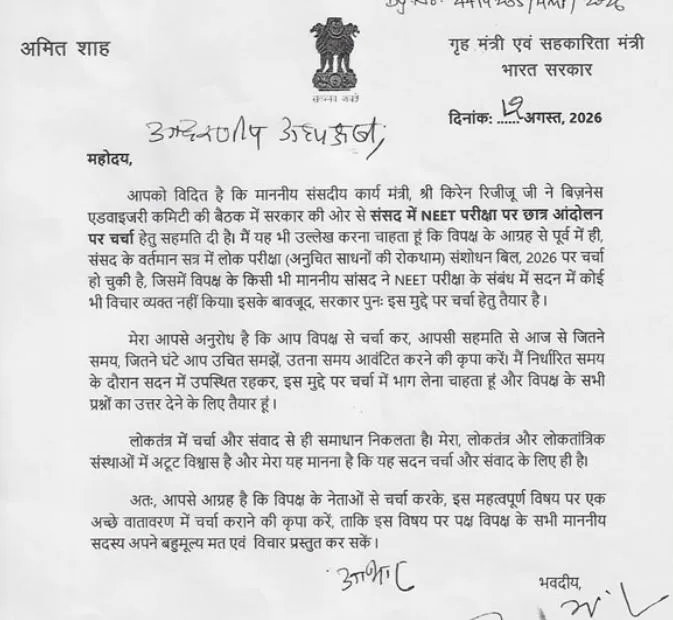 अमित शाह
गृह मंत्री एवं सहकारिता मंत्री
भारत सरकार
दिनांक: ......अगस्त, 2026
आदरणीय अध्यक्ष जी,
महोदय,
आपको विदित है कि माननीय संसदीय कार्य मंत्री, श्री किरेन रिजीजू जी ने बिज़नेस
एडवाइजरी कमिटी की बैठक में सरकार की ओर से संसद में NEET परीक्षा पर छात्र आंदोलन
पर चर्चा हेतु सहमति दी है। मैं यह भी उल्लेख करना चाहता हूं कि विपक्ष के आग्रह से पूर्व में ही,
संसद के वर्तमान सत्र में लोक परीक्षा (अनुचित साधनों की रोकथाम) संशोधन बिल, 2026 पर चर्चा
हो चुकी है, जिसमें विपक्ष के किसी भी माननीय सांसद ने NEET परीक्षा के संबंध में सदन में कोई
भी विचार व्यक्त नहीं किया। इसके बावजूद, सरकार पुनः इस मुद्दे पर चर्चा हेतु तैयार है।
मेरा आपसे अनुरोध है कि आप विपक्ष से चर्चा कर, आपसी सहमति से आज से जितने
समय, जितने घंटे आप उचित समझें, उतना समय आवंटित करने की कृपा करें। मैं निर्धारित समय
के दौरान सदन में उपस्थित रहकर, इस मुद्दे पर चर्चा में भाग लेना चाहता हूं और विपक्ष के सभी
प्रश्नों का उत्तर देने के लिए तैयार हूं।
लोकतंत्र में चर्चा और संवाद से ही समाधान निकलता है। मेरा, लोकतंत्र और लोकतांत्रिक
संस्थाओं में अटूट विश्वास है और मेरा यह मानना है कि यह सदन चर्चा और संवाद के लिए ही है।
अतः, आपसे आग्रह है कि विपक्ष के नेताओं से चर्चा करके, इस महत्वपूर्ण विषय पर एक
अच्छे वातावरण में चर्चा कराने की कृपा करें, ताकि इस विषय पर पक्ष विपक्ष के सभी माननीय
सदस्य अपने बहुमूल्य मत एवं विचार प्रस्तुत कर सकें।
आभार
भवदीय,